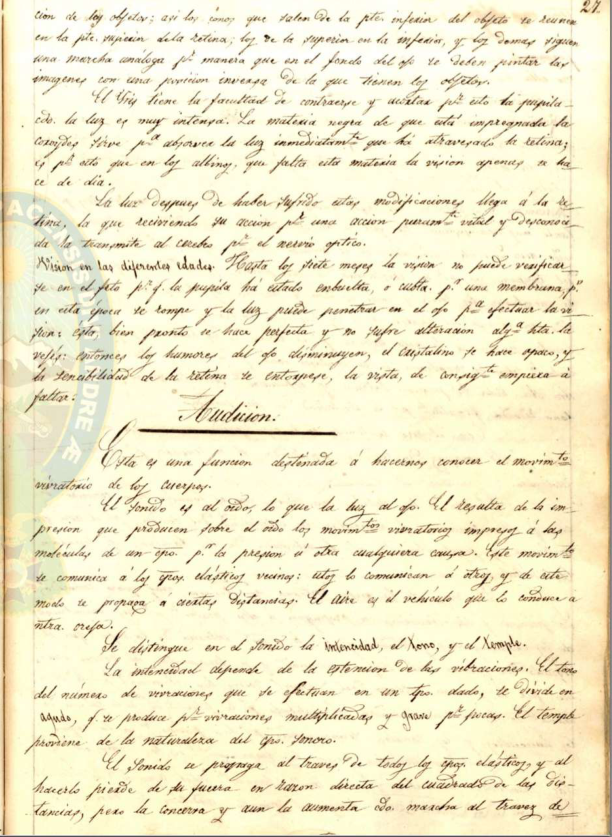 27.
cion de los objetos; asi los conos que salen de la pte. inferior del objeto se reunen
en la pte. superior de la retina; los de la superior en la inferior, y los demas siguen
una marcha análoga pr. manera que en el fondo del ojo se deben pintar las
imagenes con una posicion inversa de la que tienen los objetos.
El Iris tiene la facultad de contraerse y acortar pr. esto la pupila
cdo. la luz es muy intensa. La materia negra de que está impregnada la
coroydes sirve pa. absorver la luz inmediatamte. que há atravesado la retina;
es pr. esto que en los albinos, que falta esta materia la vision apenas se ha-
ce de dia.
La luz despues de haber sufrido estas modificaciones llega á la re-
tina, la que reciviendo su acción pr. una accion puramte. vital y desconoci-
da la transmite al cerebro pr. el nervio optico.
Vision en las diferentes edades. Hasta los siete meses la vision no puede verificar-
se en el feto pr. q. la pupila há estado enbuelta, ó cubta. pr. una membrana, pr.
en esta época se rompe y la luz puede penetrar en el ojo pa. efectuar la vi-
sion: esta bien pronto se hace perfecta y no sufre alteracion alga. hta. la
vejes: entonces los humores del ojo disminuyen, el cristalino se hace opaco, y
la sencibilidad de la retina se entorpese, la vista, de consigte. empieza á
faltar.
Audicion.
Esta es una funcion destinada á hacernos conocer el movimto.
vivratorio de los cuerpos.
El sonido es al oido, lo que la luz al ojo. El resulta de la im-
presion que producen sobre el oido los movimtos. vivratorios impresos á las
moléculas de un cpo. pr. la presion ú otra cualquiera causa. Este movimto.
se comunica á los cpos. elásticos vecinos: estos lo comunican á otros, y de este
modo se propaga á ciertas distancias. El aire es el vehiculo que lo conduce a
ntra. oreja.
Se distingue en el sonido la intencidad, el tono, y el temple.
La intencidad depende de la estencion de las vibraciones. El tono
del número de vivraciones que se efectuan en un tpo. dado, se divide en
agudo, q. se produce pr. vivraciones multiplicadas y grave pr. pocas. El temple
proviene de la naturaleza del cpo. sonoro.
El sonido se propaga al traves de todos los cpos. elásticos, y al
hacerlo pierde de su fuerza en razon directa del cuadrado de las dis-
tancias, pero la concerva y aun la aumenta cdo. marcha al travez de